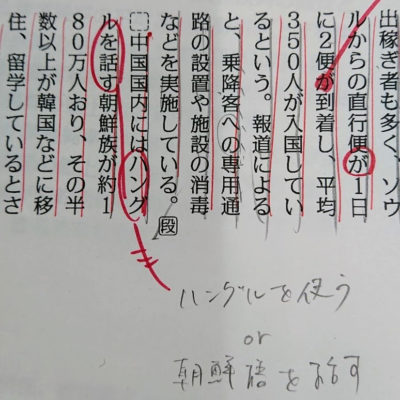 出稼ぎ者も多く、ソウ
ルからの直行便が1日
に2便が到着し、平均
350人が入国してい
るという。報道による
と、乗降客への専用通
路の設置や施設の消毒
などを実施している。
段
中国国内にはハング
ルを話す朝鮮族が約1
80万人おり、その半
数以上が韓国などに移
住、留学しているとさ
ハングルを使う
or
朝鮮語を話す